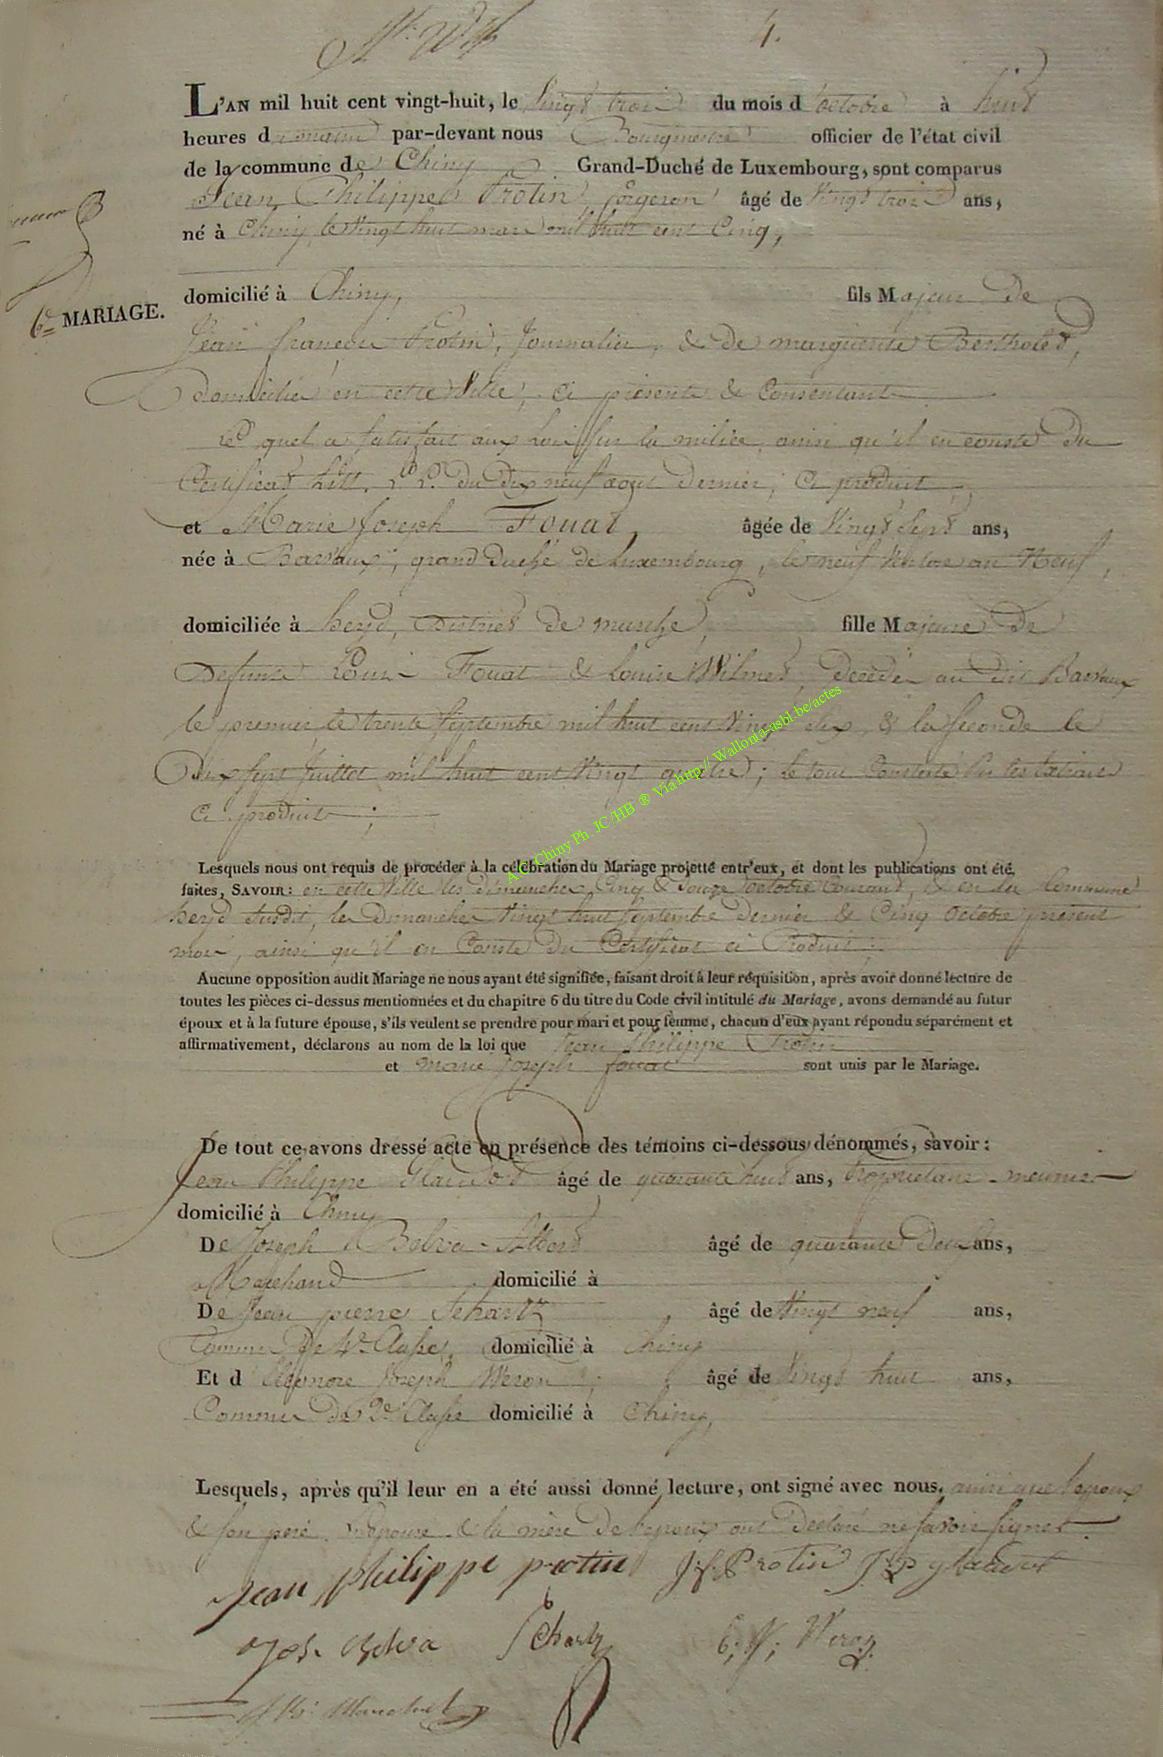 4.
L'AN mil huit cent vingt-huit, le Vingt trois du mois d'octobre à huit
heures du matin par-devant nous Bourgmestre officier de l'état civil
de la commune de Chiny Grand-Duché de Luxembourg, sont comparus
Jean Philippe Protin, forgeron âgé de Vingt trois ans,
né à Chiny, le Vingt huit mars mil huit cent Cinq,
domicilié à Chiny, fils Majeur de
6e MARIAGE.
Jean françois Protin, Journalier, & de marguerite Bertholet,
domiciliés en cette Ville, ci présents & Consentant
Le quel a satisfait aux Lois sur la milice, ainsi qu'il en conste du
Certificat Litt. du dix neuf août dernier, Ci produit,
et Marie Joseph Fouat, âgée de Vingt Sept ans,
née à Barvaux, grand Duché de Luxembourg, le neuf Ventose an Neuf,
domiciliée à heyd, District de marche, fille Majeure de
Defunts Louis Fouat & Louise Wilmet, décédés au dit Barvaux
le premier le trente Septembre mil huit cent Vingt six, & la seconde le
Dix sept Juillet mil huit cent Vingt quatre; le tout Constaté par les extraits
Ci produits;
Lesquels nous ont requis de procéder à la célébration du Mariage projetté entr'eux, et dont les publications ont été
faites, SAVOIR: en cette Ville les dimanches Cinq & Douze octobre Courant, & en la Commune
heyd susdit, les Dimanches Vingt huit Septembre dernier & Cinq octobre présent
mois, ainsi qu'il en Conste du Certificat ci Produit;
Aucune opposition audit Mariage ne nous ayant été signifiée, faisant droit à leur réquisition, après avoir donné lecture de
toutes les pièces ci-dessus mentionnées et du chapitre 6 du titre du Code civil intitulé du Mariage, avons demandé au futur
époux et à la future épouse, s'ils veulent se prendre pour mari et pour femme, chacun d'eux ayant répondu séparément et
affirmativement, déclarons au nom de la loi que Jean Philippe Protin
et Marie Joseph fouat sont unis par le Mariage.
De tout ce avons dressé acte en présence des témoins ci-dessous dénommés, savoir:
Jean Philippe âgé de quarante huit ans, Propriétaire meunier
domicilié à Chiny
De Joseph Belva âgé de quarante Deux ans,
Marchand domicilié à
De Jean pierre Schartz âgé de Vingt neuf ans,
Commis de 4e Classe, domicilié à Chiny
Et d'Eleonore Joseph Weron; âgé de Vingt huit ans,
Commis De 2e Classe domicilié à Chiny,
Lesquels, après qu'il leur en a été aussi donné lecture, ont signé avec nous, ainsi que l'époux
& son père, l'épouse & la mère de l'époux ont déclaré ne savoir signer.
jean philippe protin J. f. Protin J. P
Jos. Belva Schartz E; J; Weron
A.C. Chiny Ph. JC/HB ® Via http://Wallonia-asbl-be/actes